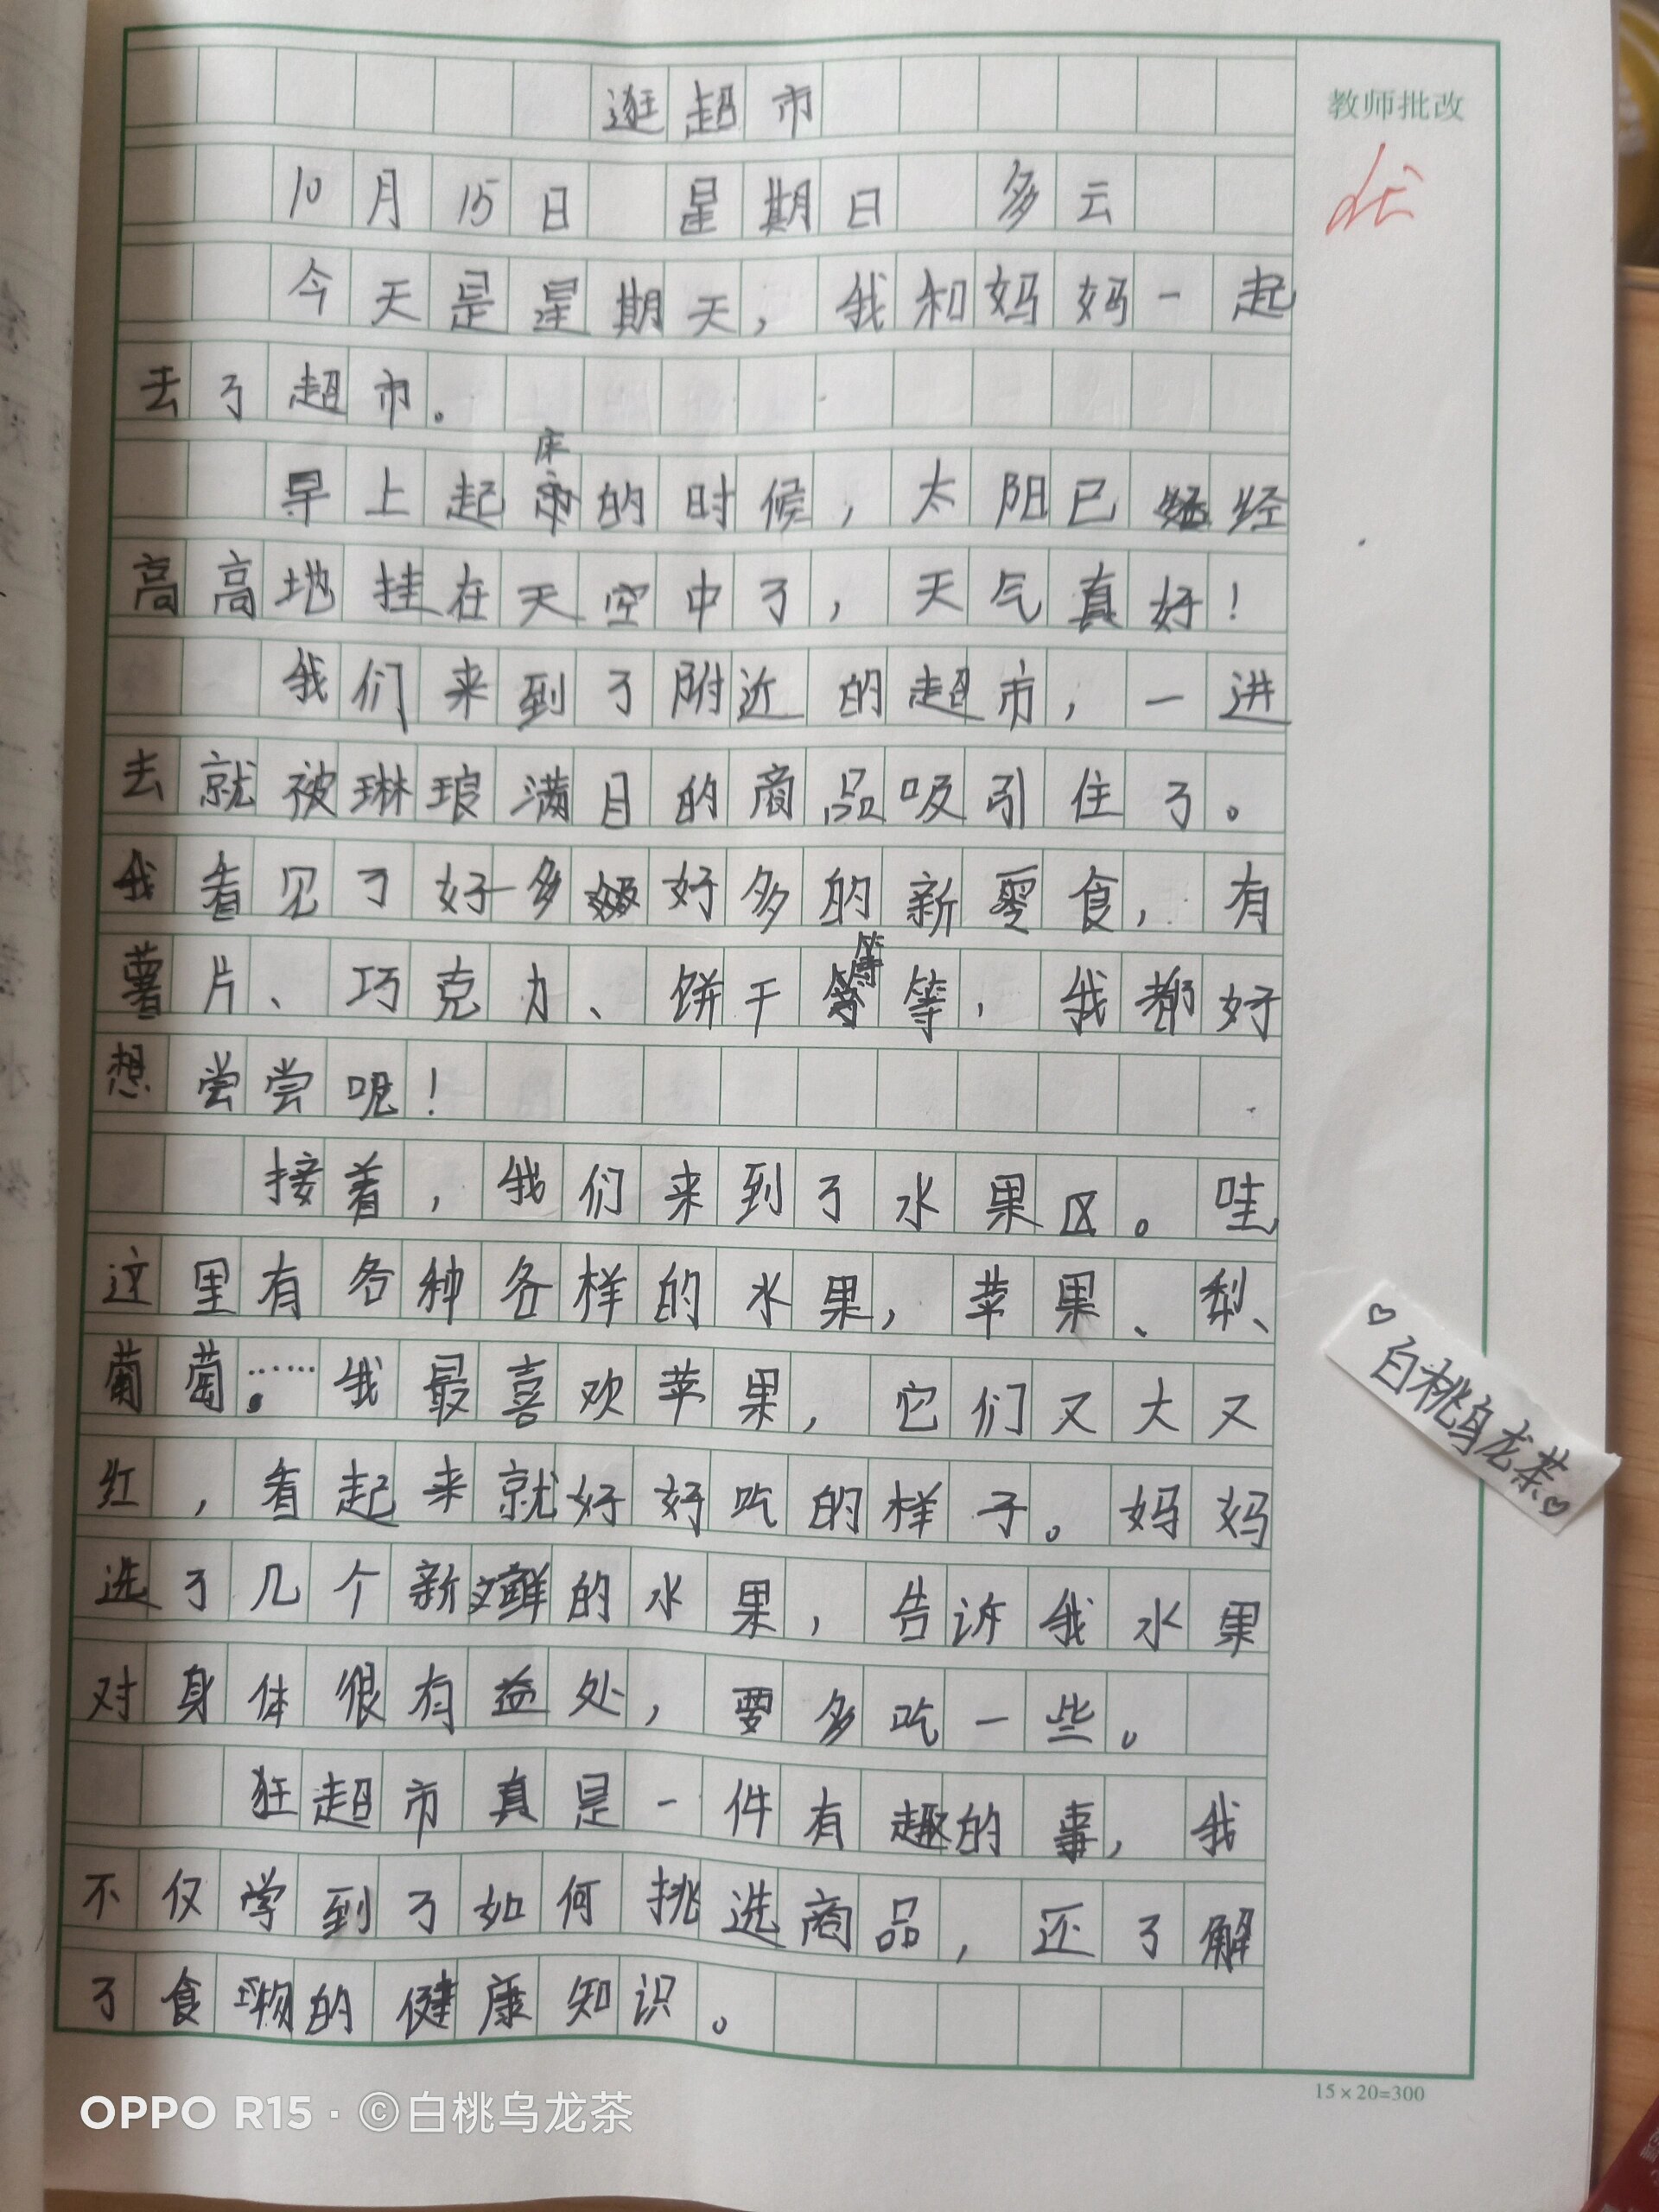 逛超市
教师批改
优
10月15日 星期日 多云
今天是星期天，我和妈妈一起
去了超市。
早上起床的时候，太阳已经
高高地挂在天空中了，天气真好！
我们来到了附近的超市，一进
去就被琳琅满目的商品吸引住了。
我看见了好多好多的新零食，有
薯片、巧克力、饼干等等，我都好
想尝尝呢！
接着，我们来到了水果区。哇
这里有各种各样的水果，苹果、梨、
葡萄……我最喜欢苹果，它们又大又
红，看起来就好好吃的样子。妈妈
选了几个新鲜的水果，告诉我水果
对身体很有益处，要多吃一些。
狂超市真是一件有趣的事，我
不仅学到了如何挑选商品，还了解
了食物的健康知识。
♡白桃乌龙茶♡
15×20=300
OPPO R15 · ©白桃乌龙茶